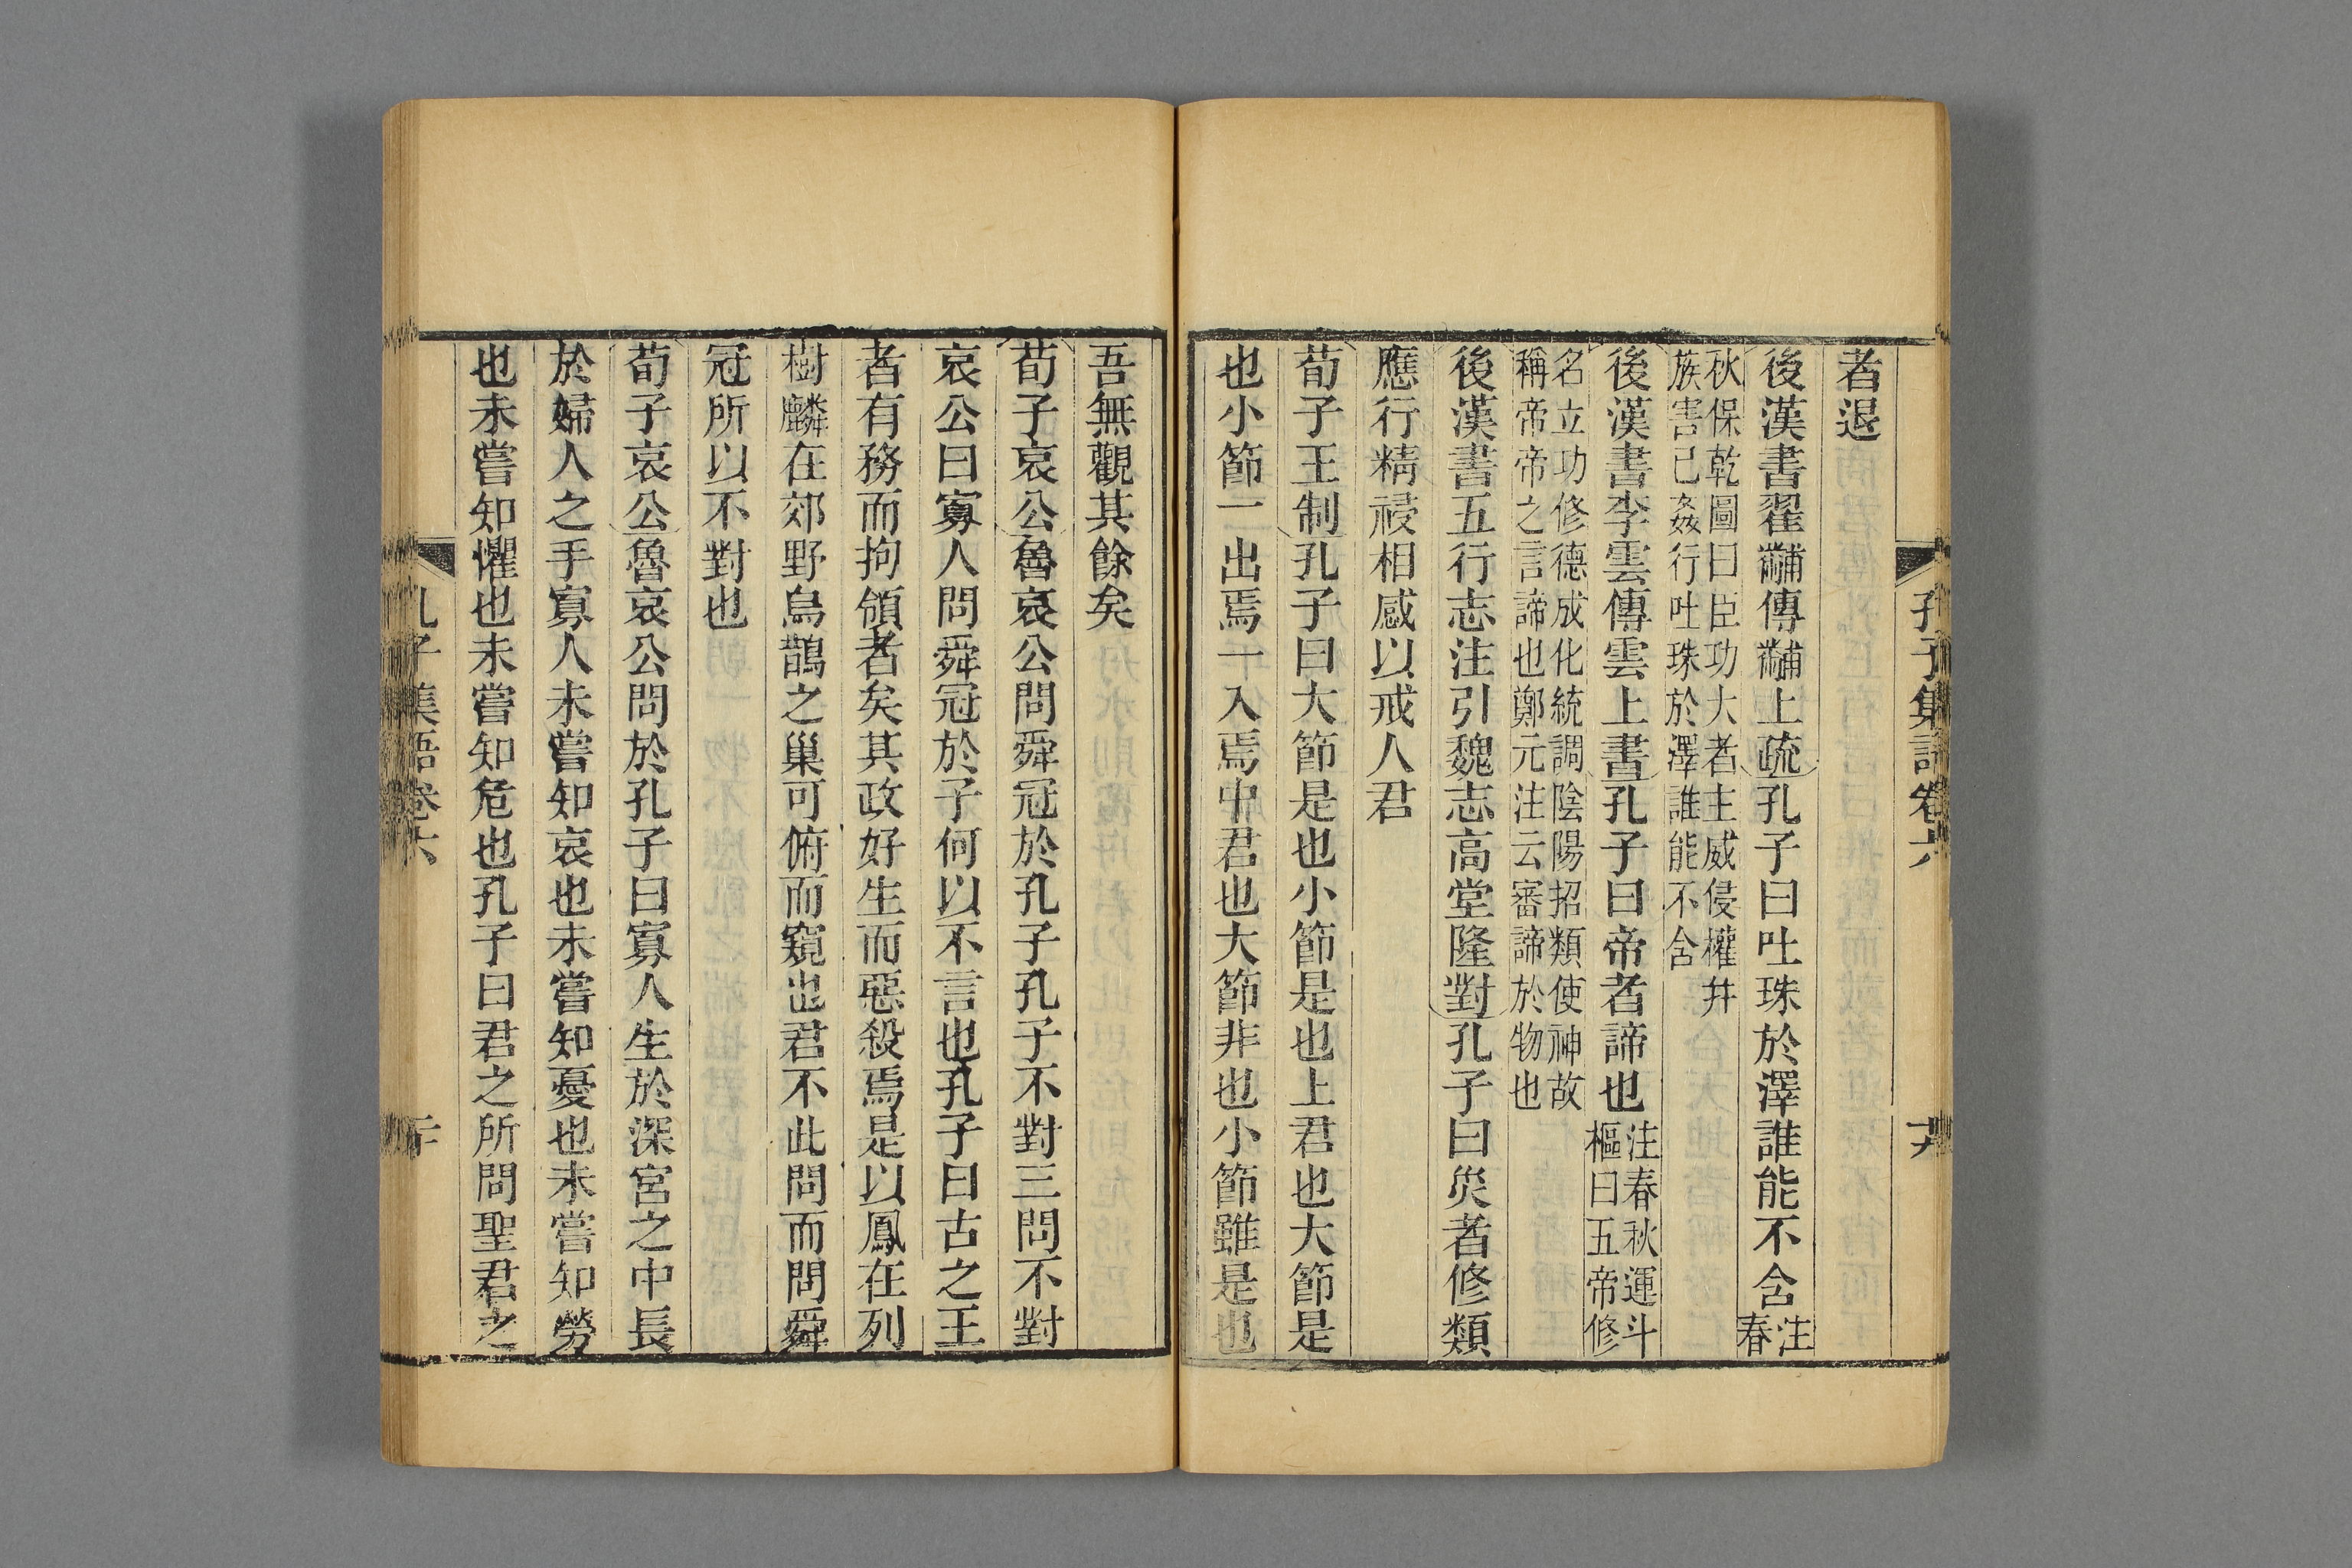 孔子集語卷六
者退
後漢書翟酺傳酺上疏孔子曰吐珠於澤誰能不含注春
秋保乾圖曰臣功大者主威侵權并
族害己姦行吐珠於澤誰能不含
後漢書李雲傳雲上書孔子曰帝者諦也注春秋運斗樞曰五帝修
名立功修德成化統調陰陽招類使神故
稱帝帝之言諦也鄭元注云審諦於物也
後漢書五行志注引魏志高堂隆對孔子曰災者修類
應行精祲相感以戒人君
荀子王制孔子曰大節是也小節是也上君也大節是
也小節一出焉一入焉中君也大節非也小節雖是也
吾無觀其餘矣
荀子哀公魯哀公問舜冠於孔子孔子不對三問不對
哀公曰寡人問舜冠於子何以不言也孔子曰古之王
者有務而拘領者矣其政好生而惡殺焉是以鳳在列
樹麟在郊野烏鵲之巢可俯而窺也君不此問而問舜
冠所以不對也
荀子哀公魯哀公問於孔子曰寡人生於深宮之中長
於婦人之手寡人未嘗知哀也未嘗知憂也未嘗知勞
也未嘗知懼也未嘗知危也孔子曰君之所問聖君之
孔子集語卷六